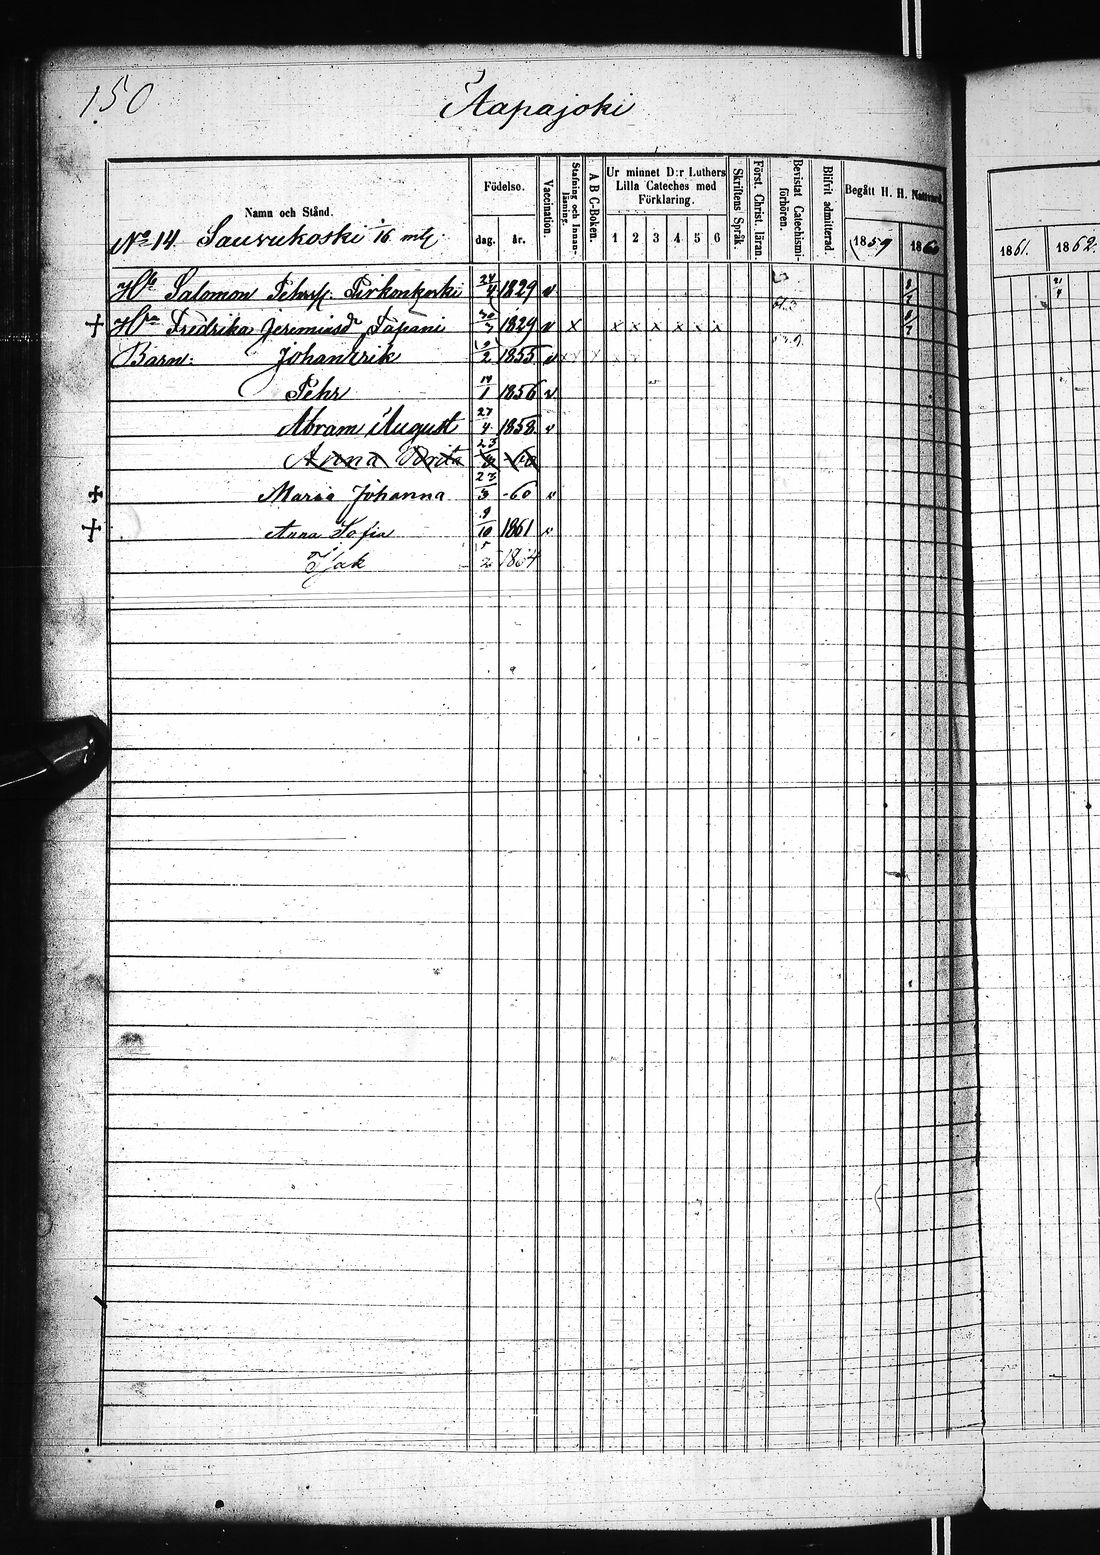 150
Aapajoki
Namn och Stånd.
Födelse.
dag.
år.
Vaccination.
Stafning och Innanläsning.
A B C-Boken.
Ur minnet D:r Luthers
Lilla Cateches med
Förklaring.
1 2 3 4 5 6
Skriftens Språk.
Först. Christ. läran.
Bevistat Catechismiförhören.
Blifvit admitterad.
Begått H. H. Nattvard.
1859
1860
1861.
1862.
No 14 Sauvukoski 16 mtl.
Salomon Pehrss. Pirkonkoski 24/4 1829 v
+ Fredrika Jeremiasd. Tapani 30/7 1829 v x x x x x x x
Barn: Johan Erik 2 1855 v
Pehr 1 1856 v
Abram August 27/4 1858 v
Anna 23
+ Maria Johanna 23/3 -60 v
+ Anna Sofia 9/10 1861 v
Isak 5/2 1864